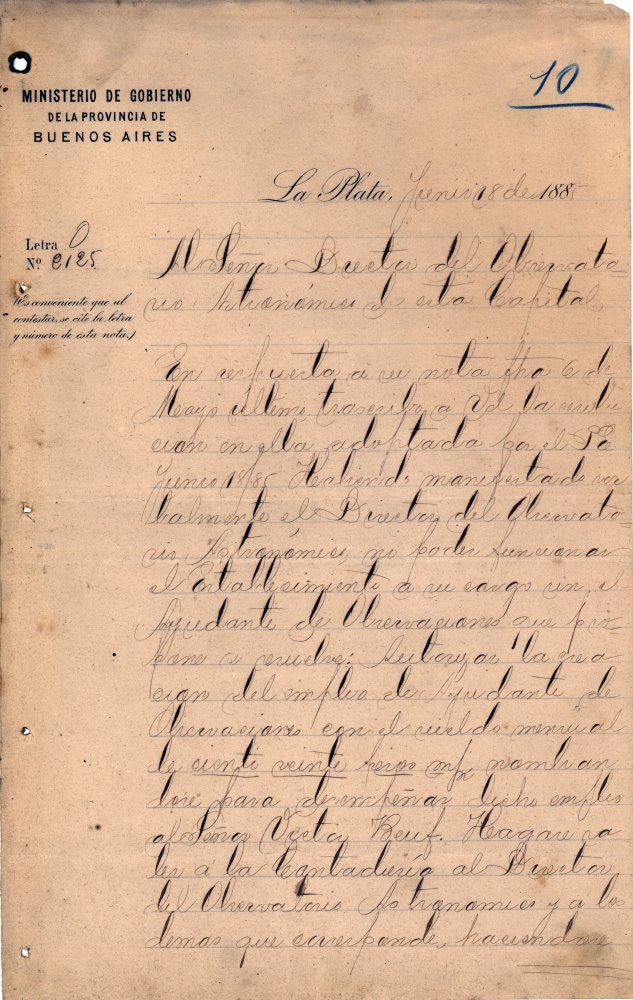 10
MINISTERIO DE GOBIERNO
DE LA PROVINCIA DE
BUENOS AIRES
La Plata, Junio 18 de 1885
Letra O
Nº 2125
(Es conveniente que al
contestar, se cite la letra
y número de esta nota.)
Al Señor Director del Observato-
rio Astronómico de esta Capital.
En respuesta a su nota fha 6 de
Mayo ultimo trascribo a Vd la resolu-
cion en ella adoptada por el P.E.
Junio 18/85. Habiendo manifestado ver
balmente el Director del Observato-
rio Astronómico, no poder funcionar
el Establecimiento a su cargo sin el
Ayudante de Observaciones que pro-
pone se resuelve: Autorizar la crea
cion del empleo de Ayudante de
Observaciones con el sueldo mensual
de ciento veinte pesos m/n nombran
dose para desempeñar dicho empleo
al Señor Victor Beuf. Hagase sa
ber á la Contaduría al Director
del Observatorio Astronomico y a los
demas que corresponde, haciendose